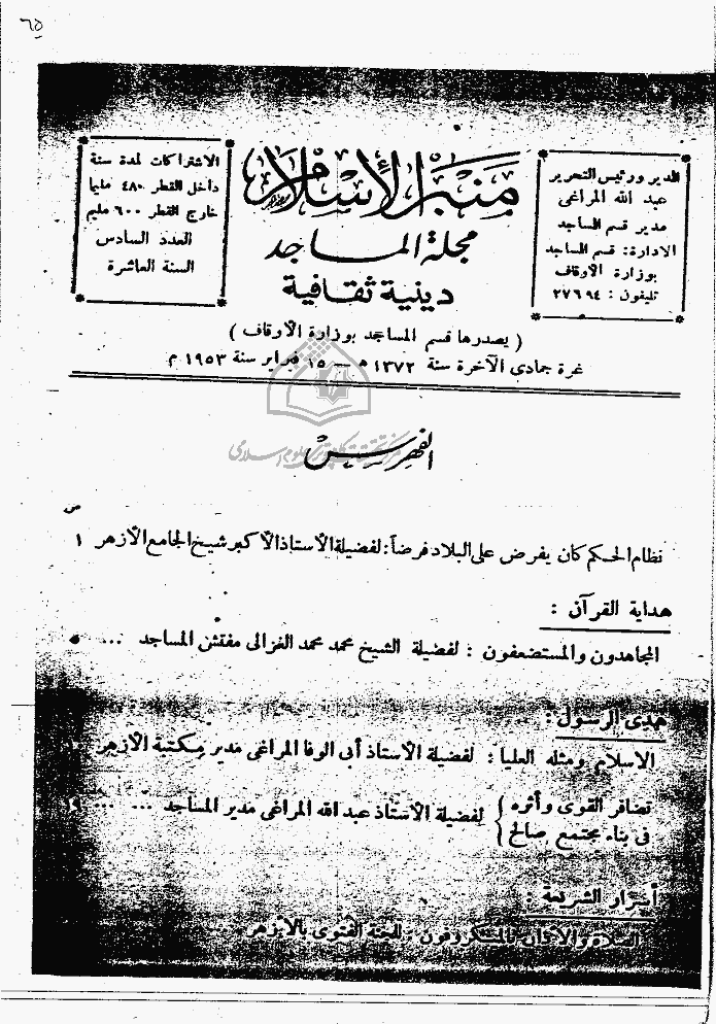 ٦٥
المدير ورئيس التحرير
عبد الله المراغى
مدير قسم المساجد
الادارة: قسم المساجد
بوزارة الأوقاف
تليفون : ٢٧٦٩٤
منبر الإسلام
مجلة المساجد
دينية ثقافية
الاشتراكات لمدة سنة
داخل القطر ٤٨٠ مليما
خارج القطر ٦٠٠ مليم
العدد السادس
السنة العاشرة
( يصدرها قسم المساجد بوزارة الأوقاف )
غرة جمادى الآخرة سنة ١٣٧٢ هـ — ١٥ فبراير سنة ١٩٥٣ م
الفهرس
ص
نظام الحكم كان يفرض على البلاد فرضاً: لفضيلة الأستاذ الأكبر شيخ الجامع الأزهر ١
هداية القرآن :
المجاهدون والمستضعفون : لفضيلة الشيخ محمد محمد الغزالى مفتش المساجد ...
هدى الرسول :
الاسلام ومثله العليا : لفضيلة الأستاذ أبى الوفا المراغى مدير مكتبة الأزهر
تضافر القوى وأثره
فى بناء مجتمع صالح } لفضيلة الأستاذ عبد الله المراغى مدير المساجد ... ...
أسرار الشريعة :
الصلاة والأذان بالميكروفون : للجنة الفتوى بالأزهر